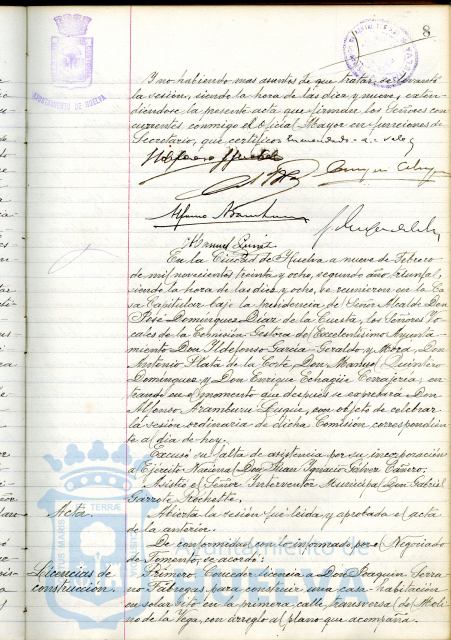 8
AYUNTAMIENTO DE HUELVA
Y no habiendo mas asuntos de que tratar, se levantó
la sesión, siendo la hora de las diez y nueve, exten
diendose la presente acta que firman los Señores con
currentes conmigo el Oficial Mayor en funciones de
Secretario, que certifico
Manuel Quint
En la Ciudad de Huelva a nueve de Febrero
de mil novecientos treinta y ocho, segundo año triunfal,
siendo la hora de las diez y ocho, se reunieron en la Ca
sa Capitular bajo la presidencia del Señor Alcalde Don
José Domínguez Díaz de la Cuesta, los Señores Vo
cales de la Comisión Gestora del Excelentísimo Ayunta
miento Don Ildefonso García-Geraldo y Mora, Don
Antonio Plata de la Corte, Don Manuel Quintero
Dominguez y Don Enrique Echagüe Cinajeria; en
trando en el momento que después se expresará Don
Alfonso Aramburu Luque, con objeto de celebrar
la sesión ordinaria de dicha Comisión correspondien
te al día de hoy.
Excusó su falta de asistencia por su incorporación
al Ejército Nacional Don Juan Ignacio Gálvez Cañero.
Asiste el Señor Interventor Municipal Don Gabriel
Garrote Rochette.
Acta.
Abierta la sesión fué leida y aprobada el acta
de la anterior.
De conformidad con lo informado por el Negociado
de Fomento, se acordó:
Licencias de
construcción.
Primero. Conceder licencia a Don Joaquin Serra
no Fábregas para construir una casa-habitación
en solar sito en la primera calle transversal del Moli
no de la Vega, con arreglo al plano que acompaña.
Ayuntamiento de